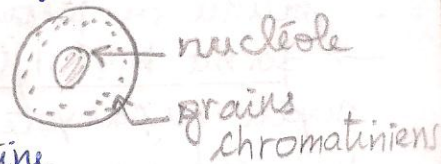 nucléole
grains
chromatiniens
tine